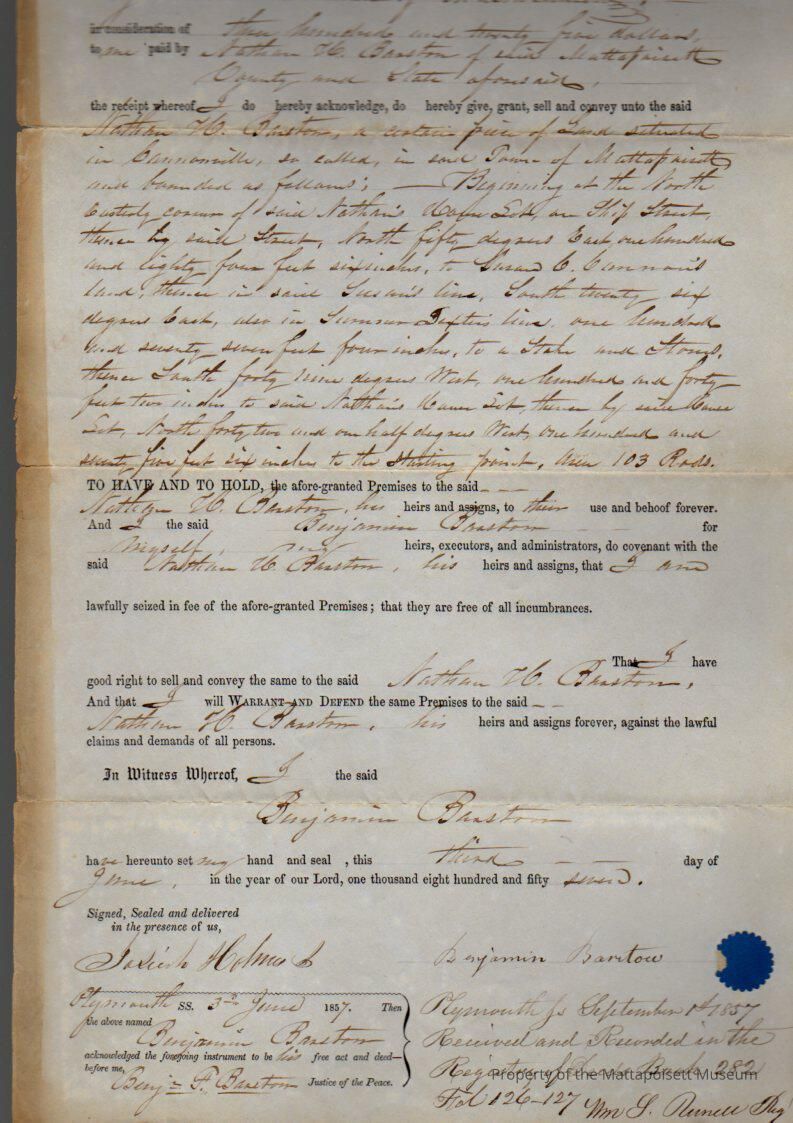 in consideration of three hundred and twenty five dollars,
to me paid by Nathan H. Barstow of said Mattapoisett
County and State aforesaid,
the receipt whereof I do hereby acknowledge, do hereby give, grant, sell and convey unto the said
Nathan H. Barstow, a certain piece of Land situated
in Cannonville, so called, in said Town of Mattapoisett
and bounded as follows; — Beginning at the North
Easterly corner of said Nathan's House Lot, on Ship Street,
thence by said Street, North fifty degrees East, one hundred
and eighty four feet six inches, to Susan C. Cannon's
land, thence in said Susan's line, South twenty six
degrees East, also in Sumner Dexter's line, one hundred
and seventy seven feet four inches, to a Stake and Stones,
thence South forty nine degrees West, one hundred and forty
feet two inches to said Nathan's House Lot, thence by said House
Lot, North forty two and one half degrees West, one hundred and
seventy five feet six inches to the Starting point, 103 Rods.
TO HAVE AND TO HOLD, the afore-granted Premises to the said
Nathan H. Barstow, his heirs and assigns, to their use and behoof forever.
And I the said Benjamin Barstow for
myself, my heirs, executors, and administrators, do covenant with the
said Nathan H. Barstow, his heirs and assigns, that I am
lawfully seized in fee of the afore-granted Premises; that they are free of all incumbrances.
That I have
good right to sell and convey the same to the said Nathan H. Barstow,
And that I will WARRANT AND DEFEND the same Premises to the said
Nathan H. Barstow, his heirs and assigns forever, against the lawful
claims and demands of all persons.
In Witness Whereof, I the said
Benjamin Barstow
have hereunto set my hand and seal, this third day of
June, in the year of our Lord, one thousand eight hundred and fifty seven.
Signed, Sealed and delivered
in the presence of us,
Josiah Holmes Benjamin Barstow
Plymouth SS. 3rd June 1857. Then
the above named
Benjamin Barstow
acknowledged the foregoing instrument to be his free act and deed—
before me,
Benj. F. Barstow Justice of the Peace.
Plymouth ss September 1st 1857
Received and Recorded in the
Registry of Deeds Book 282
Fol 126-127 Wm S. Russell Reg
Property of the Mattapoisett Museum